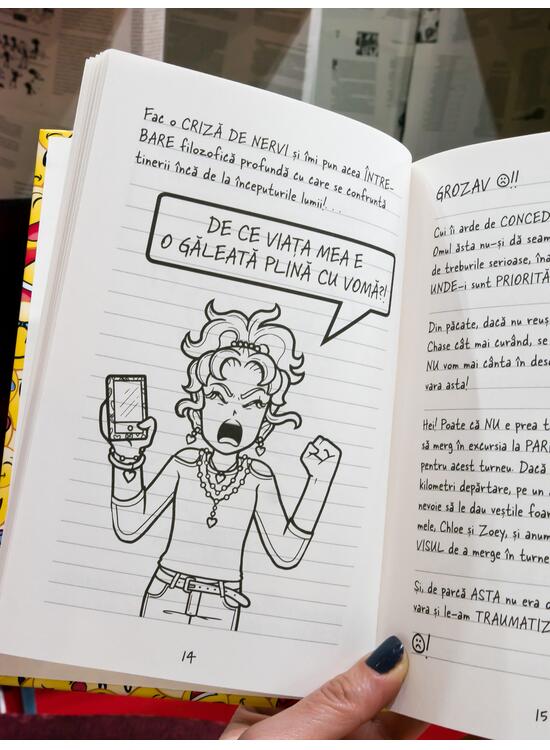 Fac o CRIZĂ DE NERVI și îmi pun acea ÎNTRE-
BARE filozofică profundă cu care se confruntă
tinerii încă de la începuturile lumii! . . .
DE CE VIAȚA MEA E
O GĂLEATĂ PLINĂ CU VOMĂ?!
14
GROZAV ☹!!
Cui îi arde de
Omul ăsta nu-și dă
de treburile serioase,
UNDE-i sunt
Din păcate, dacă nu
Chase cât mai curând, se
NU vom mai cânta în
vara asta!
Hei! Poate că NU e prea
să merg în excursia la
pentru acest turneu. Dacă
kilometri depărtare, pe un
nevoie să le dau veștile
mele, Chloe și Zoey, și
VISUL de a merge în
Și, de parcă ASTA nu era
vara și le-am
☹!
15